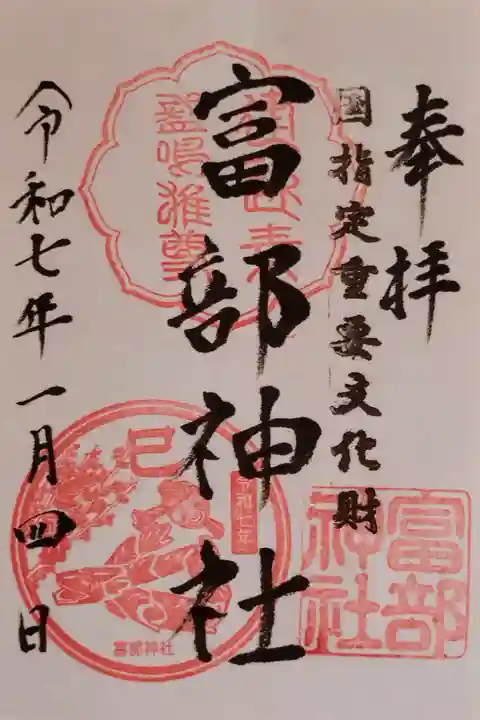 奉拝
国指定重要文化財
富部神社
令和七年一月四日
富部神社
巳
令和七年
富部神社